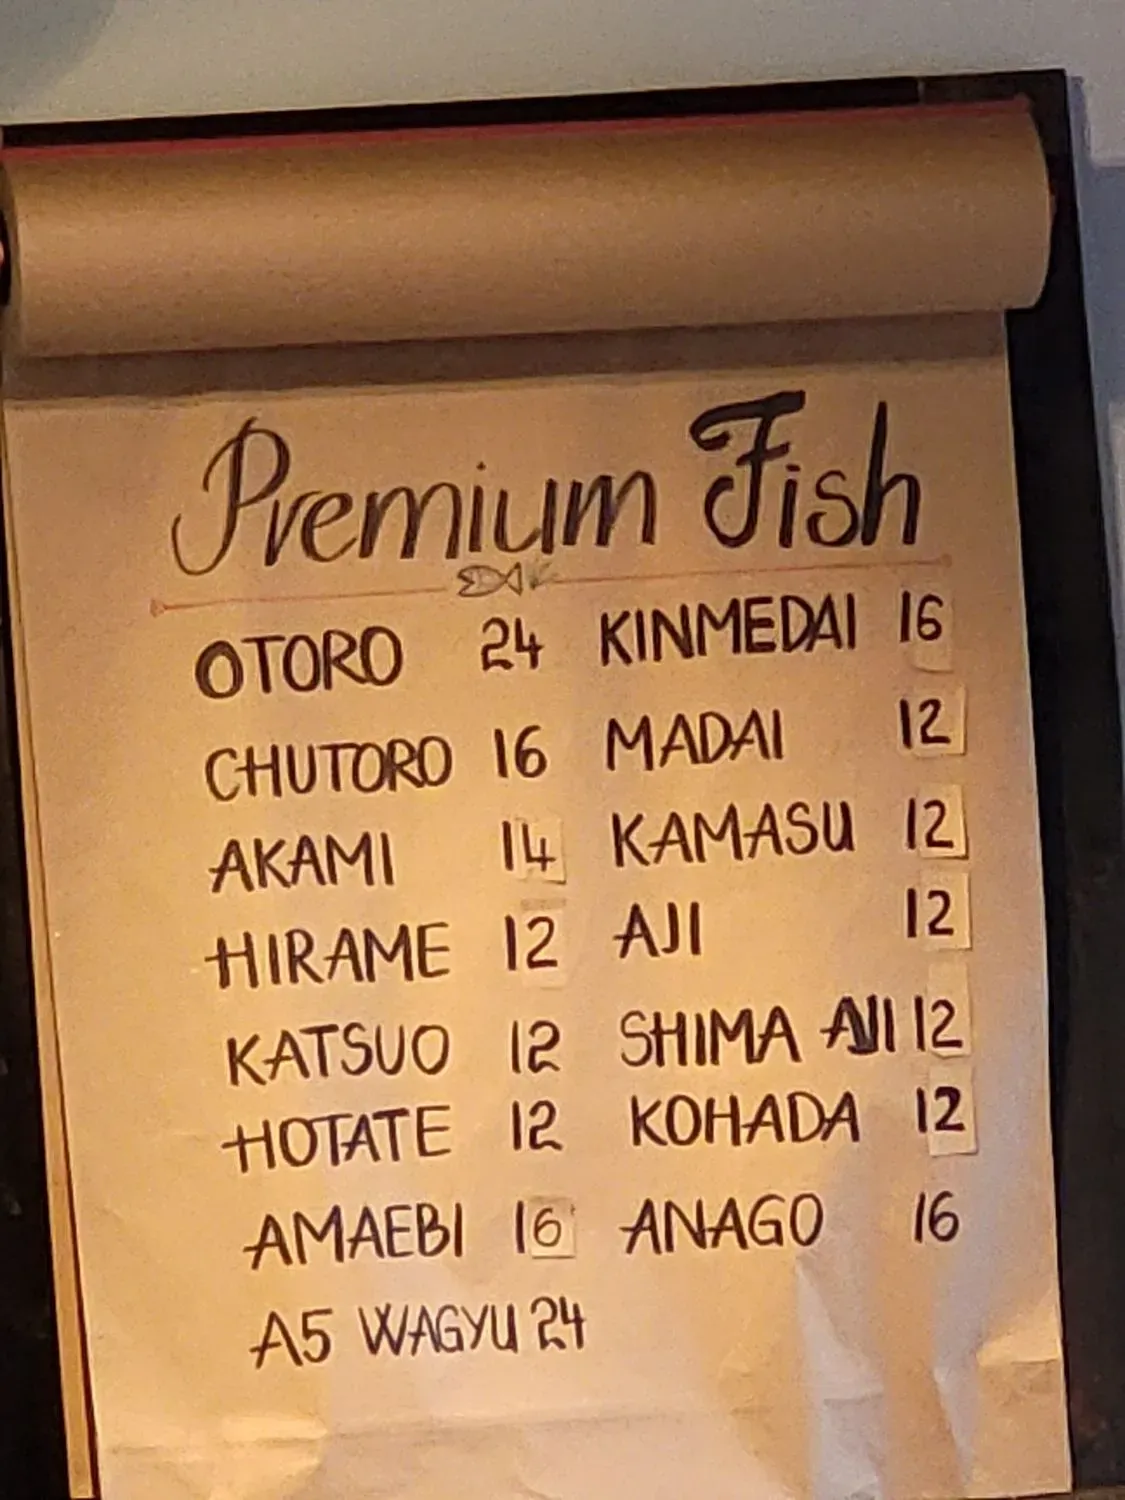 Premium Fish
OTORO 24 KINMEDAI 16
CHUTORO 16 MADAI 12
AKAMI 14 KAMASU 12
HIRAME 12 AJI 12
KATSUO 12 SHIMA AJI 12
HOTATE 12 KOHADA 12
AMAEBI 16 ANAGO 16
A5 WAGYU 24